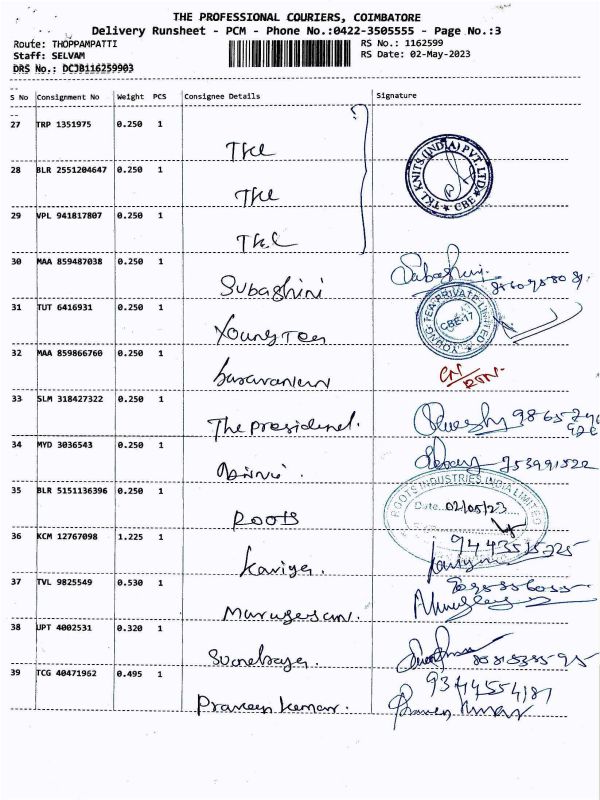 THE PROFESSIONAL COURIERS, COIMBATORE
Delivery Runsheet - PCM - Phone No.:0422-3505555 - Page No.:3
Route: THOPPAMPATTI RS No.: 1162599
Staff: SELVAM RS Date: 02-May-2023
DRS No.: DCJB116259903
S No Consignment No Weight PCS Consignee Details Signature
27 TRP 1351975 0.250 1
TKL
TKT KNITS (INDIA) PVT. LTD. ★ CBE ★
28 BLR 2551204647 0.250 1
TKL
29 VPL 941817807 0.250 1
TKL
30 MAA 859487038 0.250 1
Subashini Subashini
31 TUT 6416931 0.250 1
Young Tea
YOUNG TEA PRIVATE LIMITED CBE-17
32 MAA 859866760 0.250 1
Saravanan
33 SLM 318427322 0.250 1
The president.
34 MYD 3036543 0.250 1
35 BLR 5151136396 0.250 1
ROOTS
ROOTS INDUSTRIES INDIA LIMITED
Date: 02/05/23
36 KCM 12767098 1.225 1
Kaviya. 9443515225
37 TVL 9825549 0.530 1
Murugesan.
38 UPT 4002531 0.320 1
39 TCG 40471962 0.495 1
Praveen kumar. 9344554187
Praveen Kumar